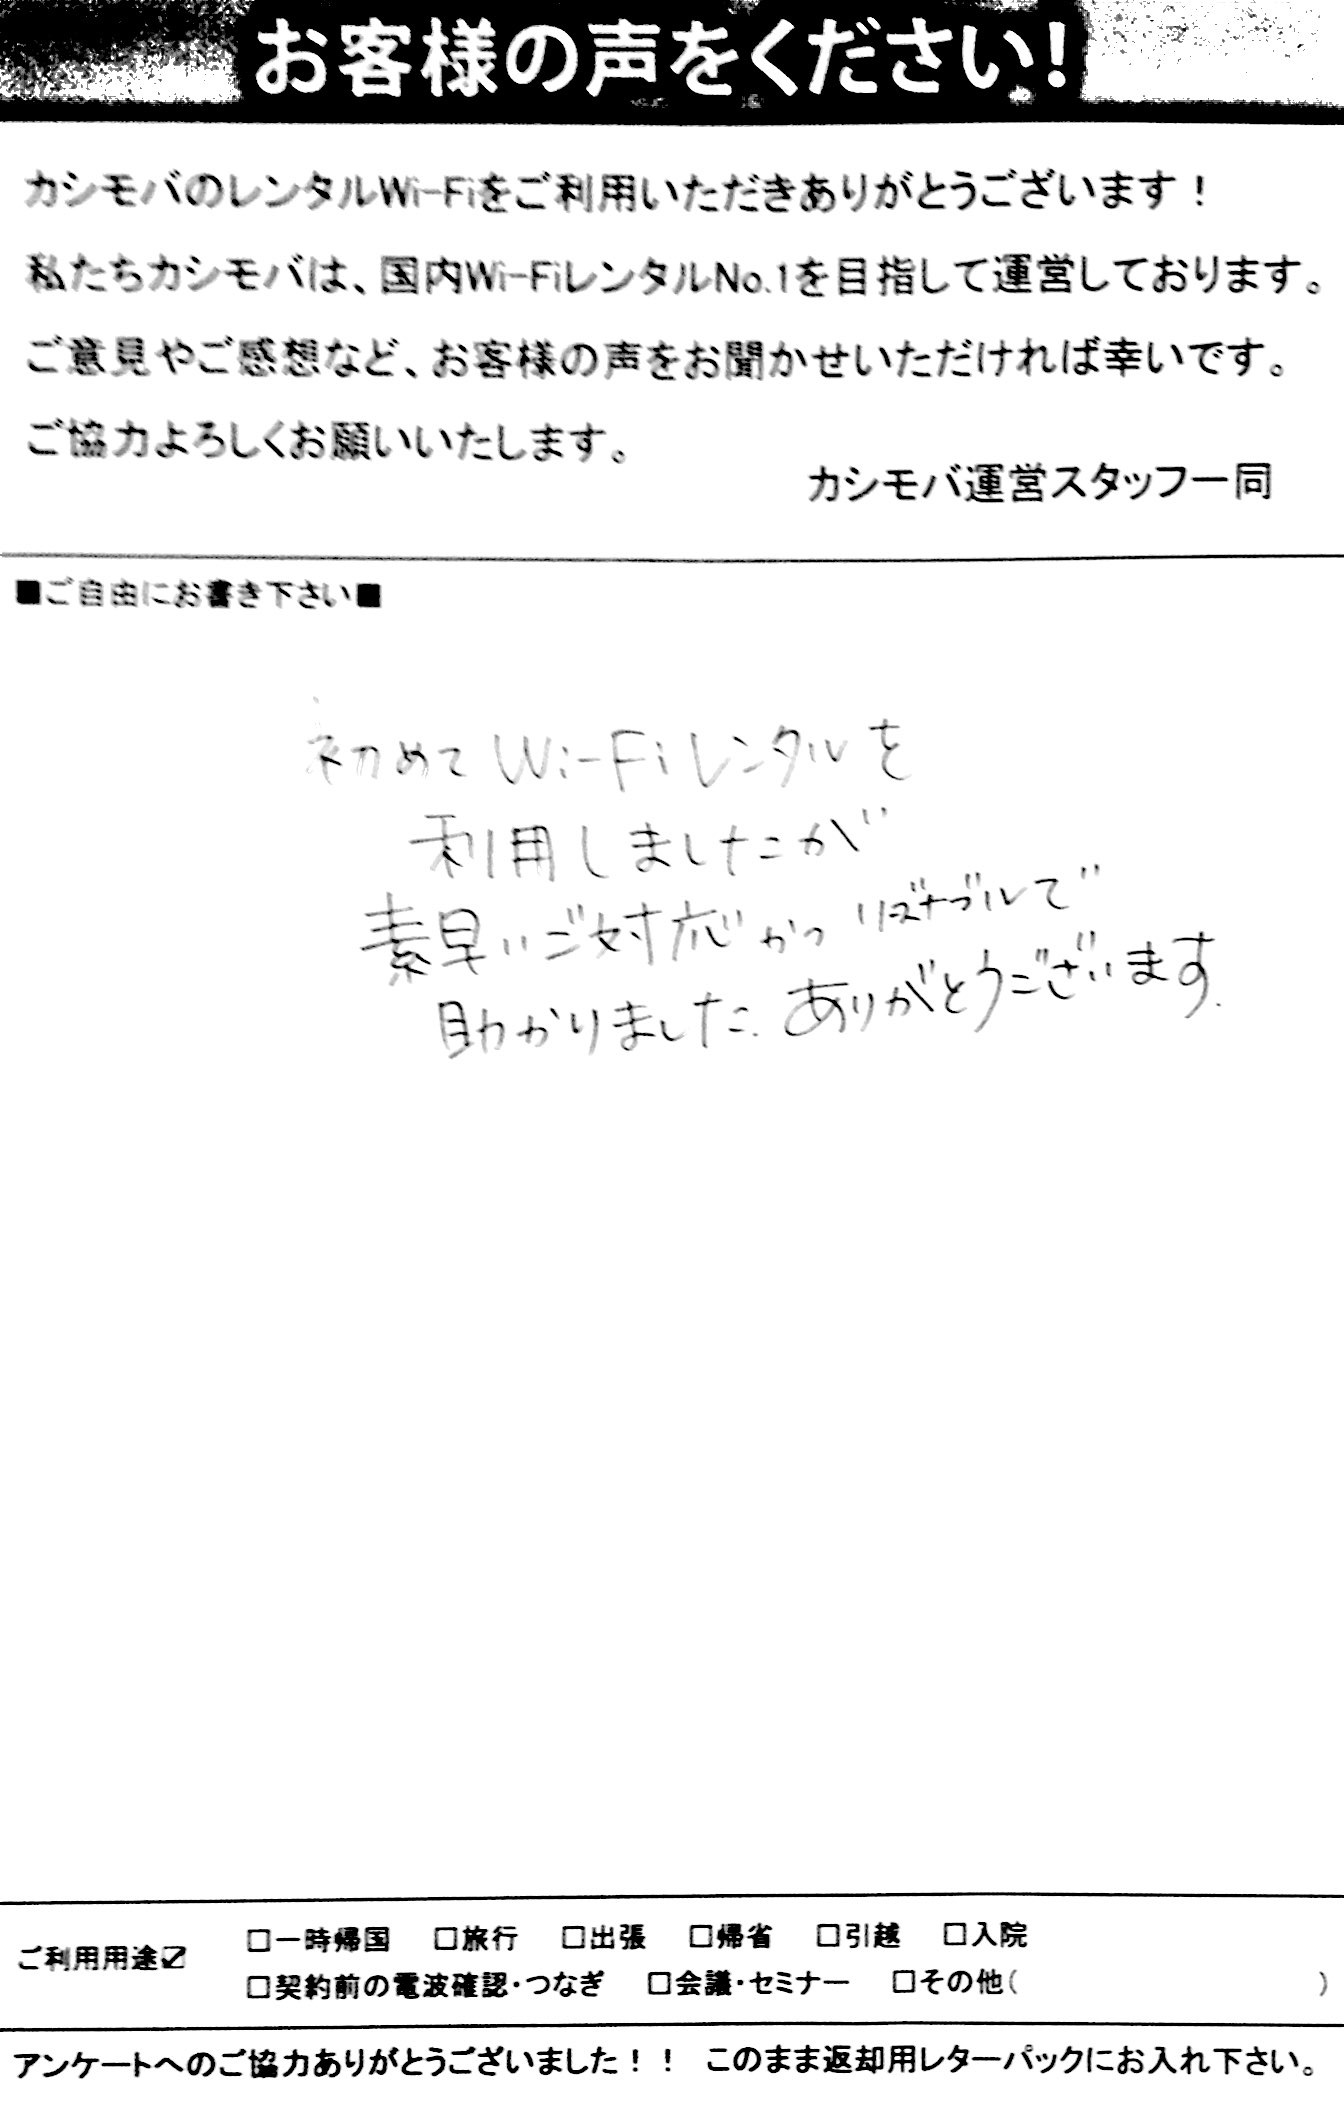 お客様の声をください!
カシモバのレンタルWi-Fiをご利用いただきありがとうございます！
私たちカシモバは、国内Wi-FiレンタルNo.1を目指して運営しております。
ご意見やご感想など、お客様の声をお聞かせいただければ幸いです。
ご協力よろしくお願いいたします。
カシモバ運営スタッフ一同
■ご自由にお書き下さい■
初めてWi-Fiレンタルを
利用しましたが
素早いご対応かつリーズナブルで
助かりました。ありがとうございます。
ご利用用途☑
□一時帰国 □旅行 □出張 □帰省 □引越 □入院
□契約前の電波確認・つなぎ □会議・セミナー □その他( )
アンケートへのご協力ありがとうございました！！ このまま返却用レターパックにお入れ下さい。